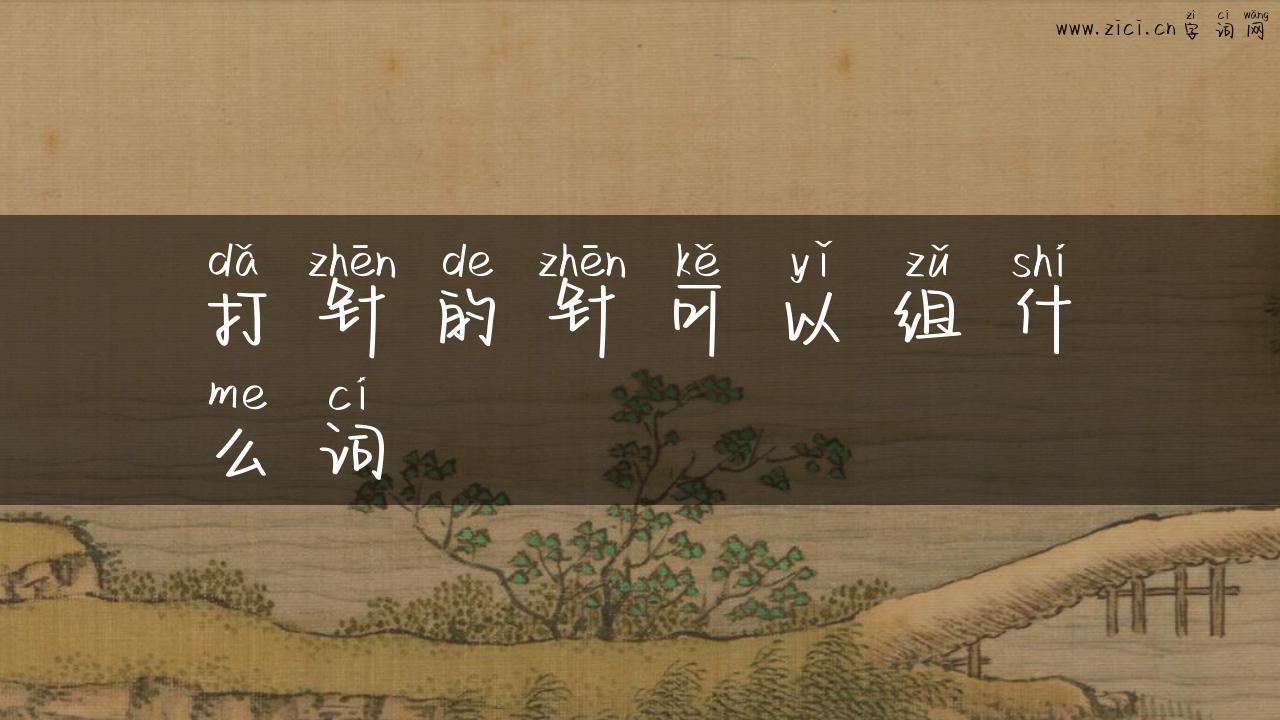 zì cí wǎng
www.zici.cn 字 词 网
dǎ zhēn de zhēn kě yǐ zǔ shí
打 针 的 针 可 以 组 什
me cí
么 词